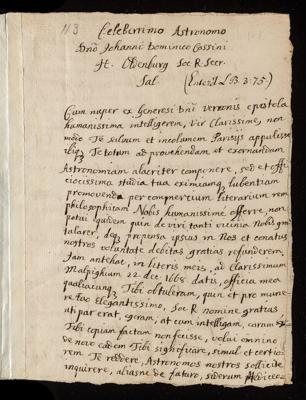 113 Celeberrimo Astronomo
Dno Johanni Dominico Cassini
H. Oldenburg Soc R. Secr.
Sal. (Enter'd LB. 3. 75.)
Cum nuper ex Generosi Dni Vernonis epistola
humanissima intelligerem, Vir Clarissime, non
modo Te salvum et incolumem Parisijs appulisse
Te totum ad provehendam et exornandam
Astronomiam alacriter componere, sed et offi
ciosissima studia tua eximiamq; lubentiam
promovendi per commercium literarum rem
philosophicam Nobis humanissime offerre, non
potui quidem quin de viri tanti vicinia Nobis gra
tularer, deq; propensa ipsius in Nos et conatus
nostros voluntate debitas gratias refunderem.
Jam antehac, in literis meis, ad clarissimum
Malpighium 22 dec. 1668 datis, officia mea
qualiacunq; Tibi obtuleram, quin et pro mune
re tuo elegantissimo, Soc. R. nomine gratias
ut par erat, egeram, at cum intelligam, earum
Tibi copiam factam non fuisse, volui omnino
de novo eadem Tibi significare, simul et certio
rem Te reddere, Astronomos nostros sollicite
inquirere, aliasne de futuro, siderum